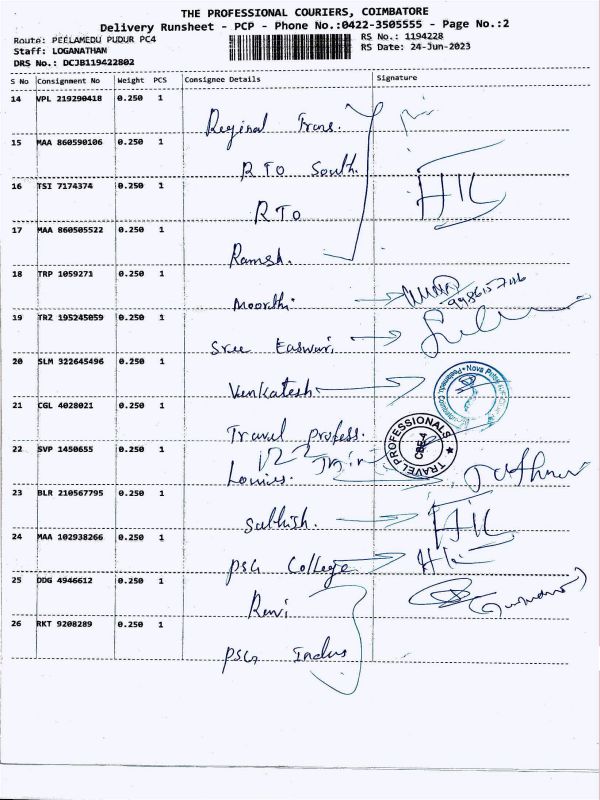 THE PROFESSIONAL COURIERS, COIMBATORE
Delivery Runsheet - PCP - Phone No.:0422-3505555 - Page No.:2
Route: PEELAMEDU PUDUR PC4 RS No.: 1194228
Staff: LOGANATHAN RS Date: 24-Jun-2023
DRS No.: DCJB119422802
S No Consignment No Weight PCS Consignee Details Signature
14 VPL 219290418 0.250 1 Reginal Trans.
15 MAA 860590106 0.250 1 RTO South.
16 TSI 7174374 0.250 1 RTO
17 MAA 860505522 0.250 1 Ramesh.
18 TRP 1059271 0.250 1 Moorthi
19 TRZ 195245059 0.250 1 Sree Easwari
20 SLM 322645496 0.250 1 Venkatesh
21 CGL 4028021 0.250 1 Travel profess.
TRAVEL PROFESSIONALS CBE-4
22 SVP 1450655 0.250 1
23 BLR 210567795 0.250 1 Sathish.
24 MAA 102938266 0.250 1 PSG College
25 DDG 4946612 0.250 1 Ravi
26 RKT 9208289 0.250 1 PSG Indus